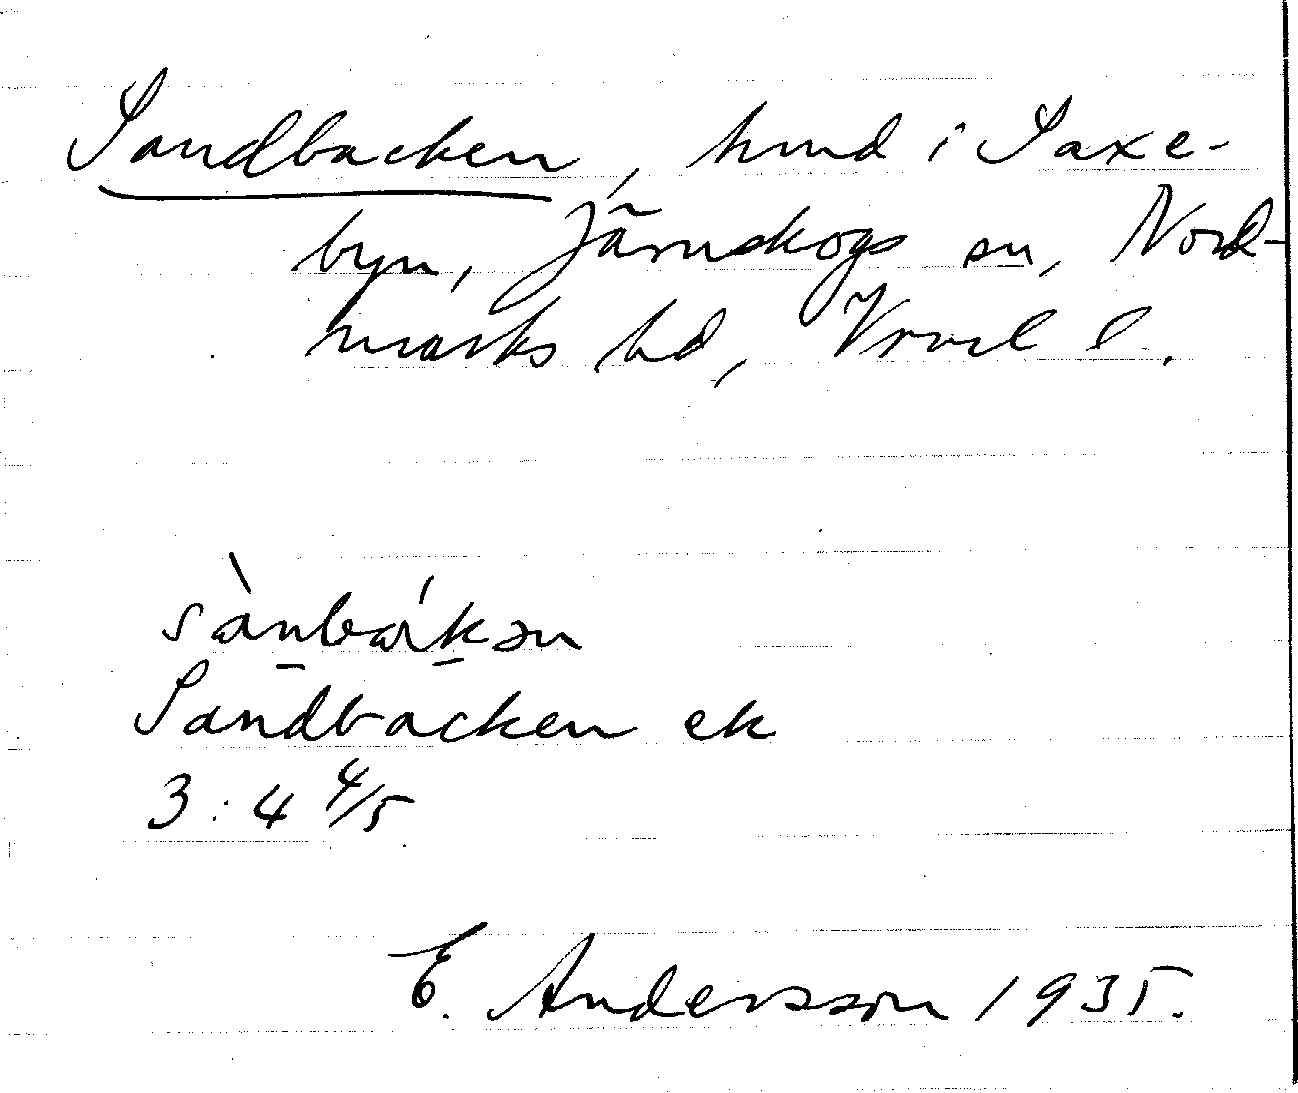 Sandbacken, hmd i Saxe-
byn, Järnskogs sn, Nord-
marks hd, Vrml l.
sànbákən
Sandbacken ek
3:4 4/5
E. Andersson 1935.